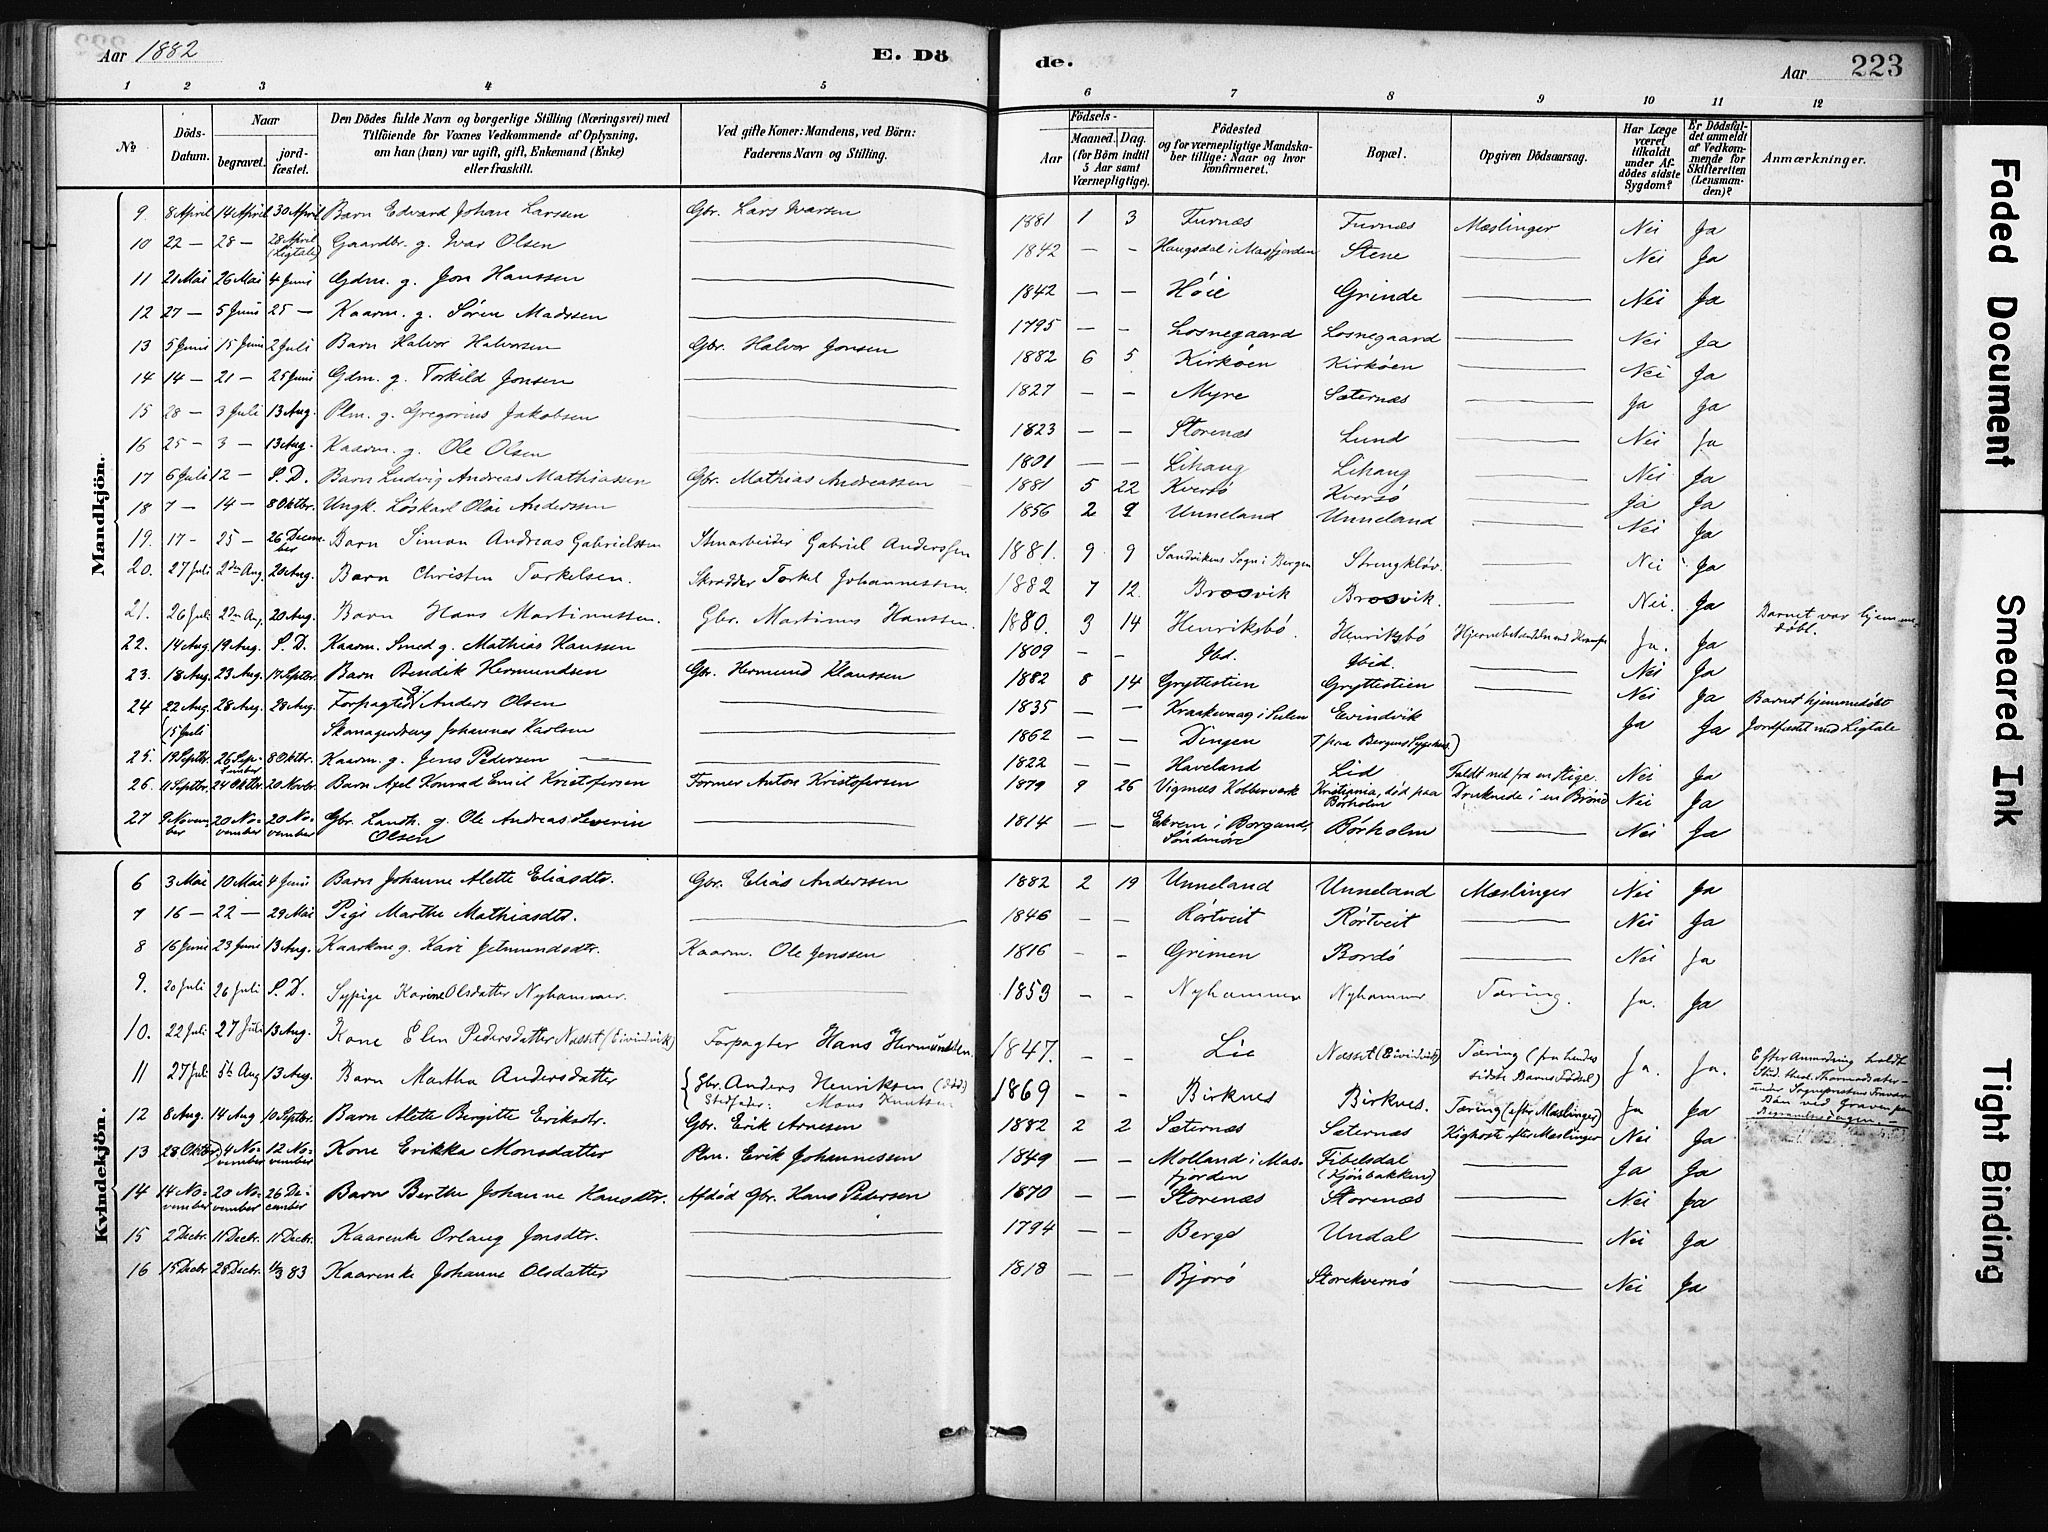 Aar 1882 E. Dö de. Aar 223
1 2 3 4 5 6 7 8 9 10 11 12
№ Döds-Datum. Naar begravet. jordfæstet. Den Dödes fulde Navn og borgerlige Stilling (Næringsvei) med Tilföiende for Voxnes Vedkommende af Oplysning, om han (hun) var ugift, gift, Enkemand (Enke) eller fraskilt. Ved gifte Koner: Mandens, ved Börn: Faderens Navn og Stilling. Födsels- Aar Maaned. Dag. (for Börn indtil 5 Aar samt Værnepligtige). Födested og for værnepligtige Mandskaber tillige: Naar og hvor konfirmeret. Bopæl. Opgiven Dödsaarsag. Har Læge været tilkaldt under Afdödes sidste Sygdom? Er Dödsfaldet anmeldt af Vedkommende for Skifteretten (Lensmanden)? Anmærkninger.
Mandkjön.
9 8 April 14 April 30 April Barn Edvard Johan Larssen Gbr. Lars Ivarsen 1881 1 3 Furnæs Furnæs Mæslinger Nei Ja
10 22 — 28 — 28 April (Ligtale) Gaardbr. g. Ivar Olsen 1842 — — Haugsdal i Masfjorden Stene Nei Ja
11 21 Mai 26 Mai 4 Juni Gdm. g. Jon Hanssen 1842 — — Höie Grinde Nei Ja
12 27 — 5 Juni 25 — Kaarm. g. Sören Madssen 1795 — — Losnegaard Losnegaard Nei Ja
13 5 Juni 15 Juni 2 Juli Barn Halvor Halvorsen Gbr. Halvor Jonsen 1882 6 5 Kirköen Kirköen Nei Ja
14 14 — 21 — 25 Juni Gdm. g. Torkild Jonsen 1827 — — Myre Sæternæs Ja Ja
15 28 — 3 Juli 13 Aug. Plm. g. Gregorius Jakobsen 1823 — — Storenæs Lund Nei Ja
16 25 — 3 — 13 Aug. Kaarm. g. Ole Olsen 1801 — — Lihaug Lihaug Nei Ja
17 6 Juli 12 — S. D. Barn Ludvig Andreas Mathiassen Gbr. Mathias Andreassen 1881 5 22 Kversö Kversö Ja Ja
18 7 — 14 — 8 Oktbr. Ungk. Löskarl Olai Anderssen 1856 2 9 Unneland Unneland Nei Ja
19. 17 - 25 — 26 December Barn Simon Andreas Gabrielssen Stenarbeider Gabriel Anderssen 1881. 9 9 Sandvikens Sogn i Bergen Nei Ja
20. 27 Juli 2den Aug. 20 Aug. Barn Christen Torkelsen. Skrædder Torkel Johannessen 1882 7 12. Brosvik Brosvik. Nei. Ja
21. 26 Juli 2den Aug. 20 Aug. Barn Hans Martinussen. Gbr. Martinus Hanssen. 1880. 3 14 Henriksbö. Henriksbö Ja. Ja Barnet var hjemmedöbt.
22. 14 Aug. 19 Aug. S. D. Kaarm. Smed g. Mathias Hanssen 1809 Ibd. Ibid. Nei Ja
23. 18 Aug. 23 Aug. 17 Septbr. Barn Bendik Hermundsen Gbr. Hermund Klaussen 1882 8 14 Gryttestien Gryttestien Nei Ja Barnet hjemmedöbt
24 22 Aug. 28 Aug. 28 Aug. Forpagter g. Anders Olsen 1835 — — Kraakevaag i Sulen Evindvik Ja Ja Jordfæstet med Ligtale
(15 Juli Johannes Karlsen 1862 — — Dingen † paa Bergens Sygehus)
25. 19 Septbr. 26 September 8 Oktbr. Kaarm. g. Jens Pedersen 1822 — — Haveland Lid Faldt ned fra en Stige. Nei Ja
26. 11 Septbr. 24 Oktbr. 20 Novbr. Barn Axel Konrad Emil Kristofersen Former Anton Kristofersen 1879 9 26 Vigsnæs Kobberverk Kristiania, död paa Börholm Druknede i en Brönd Nei Ja
27 9 November 20 November 20 November Gbr. Landh. g. Ole Andreas Severin Olsen 1814 — — Ekrem i Borgund, Söndmöre Börholm Nei Ja
Kvindekjön.
6 3 Mai 10 Mai 4 Juni Barn Johanne Alette Eliasdtr. Gbr. Elias Anderssen 1882 2 19 Unneland Unneland Mæslinger Nei Ja
7 16 — 22 — 29 Mai Pige Marthe Mathiasdtr. 1846 - - Rörtveit Rörtveit Nei Ja
8 16 Juni 23 Juni 13 Aug. Kaarkone g. Kari Jetmundsdtr. Kaarm. Ole Jenssen 1816 - - Grimen Bordö Nei Ja
9. 20 Juli 26 Juli S. D. Sypige Karine Olsdatter Nyhammer. 1853 - - Nyhammer Nyhammer Tæring. Ja. Ja
10. 22 Juli 27 Juli 13 Aug. Kone Elen Pedersdatter Næsset (Eivindvik) Forpagter Hans Hermundsen. 1847. - - Lie Næsset (Eivindvik) Tæring (fra hendes sidste Barns Födsel) Ja. Ja. Efter Anmodning holdt Stud. theol. Thormodsæter under Sognepræstens Fravær Bön ved Graven paa Begravelsesdagen. —
11 27 Juli 5te Aug 13 Aug. Barn Martha Andersdatter { Gbr. Anders Henriksen (död) Stedfader: Mons Knutsen 1869 - - Birknes Birknes. Tæring (efter Mæslinger) Ja Ja
12 8 Aug. 14 Aug 10 Septbr. Barn Alette Birgitte Eriksdtr. Gbr. Erik Arnesen 1882 2 2 Sæternæs Sæternæs Kighoste efter Mæslinger Nei Ja
13 28 Oktbr. 4 November 12 November Kone Erikka Monsdatter Plm. Erik Johannessen 1849 — — Molland i Masfjorden Fibelsdal (Hjönbakken) Ja Ja
14 14 November 20 November 26 December Barn Berthe Johanne Hansdtr. Afdöd Gbr. Hans Pedersen 1870 — — Storenæs Storenæs Nei Ja
15 2 Decbr. 11 Decbr. 11 Decbr. Kaarenke Orlaug Jonsdtr. 1794 — — Berge Undal Nei Ja
16 15 Decbr 28 Decbr. 11/3 83 Kaarenke Johanne Olsdatter 1818 — — Bjorö Storekvernö Nei Ja
Faded Document
Smeared Ink
Tight Binding